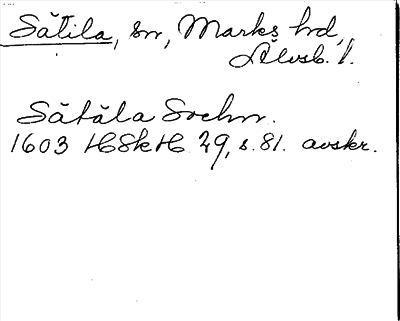 Sätila, sn, Marks hd,
Älvsb. l.
Sätåla Sochn.
1603 HSkH 29, s. 81. avskr.